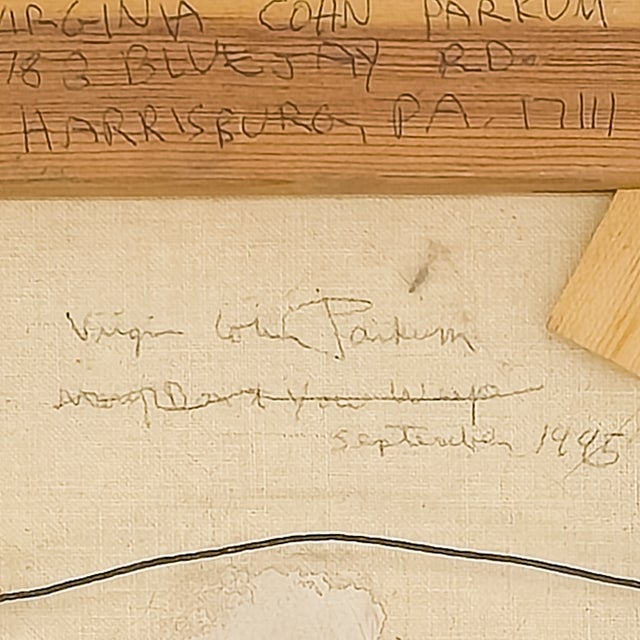 VIRGINIA COHN PARKUM
783 BLUEJAY RD.
HARRISBURG, PA. 17111
Virginia Cohn Parkum
September 1995